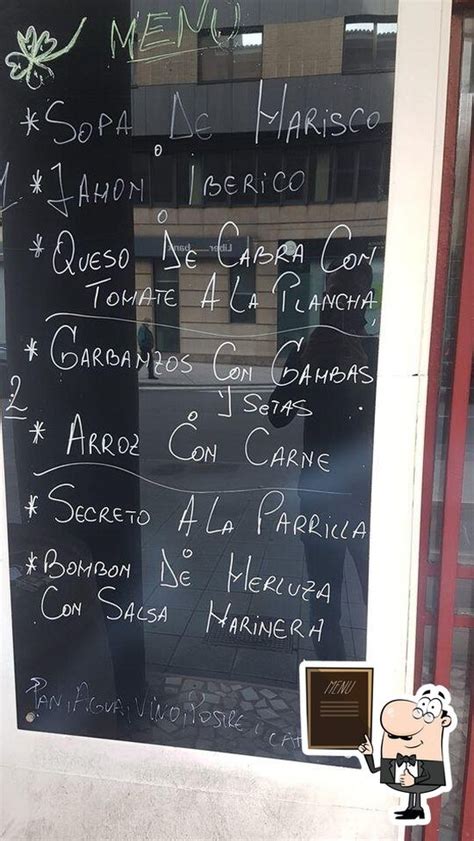 MENU
* SOPA DE MARISCO
1 * JAMON IBERICO
* QUESO DE CABRA CON
TOMATE A LA PLANCHA
* GARBANZOS CON GAMBAS
Y SETAS
2
* ARROZ CON CARNE
* SECRETO A LA PARRILLA
* BOMBON DE MERLUZA
CON SALSA MARINERA
PAN, AGUA, VINO, POSTRE
MENU